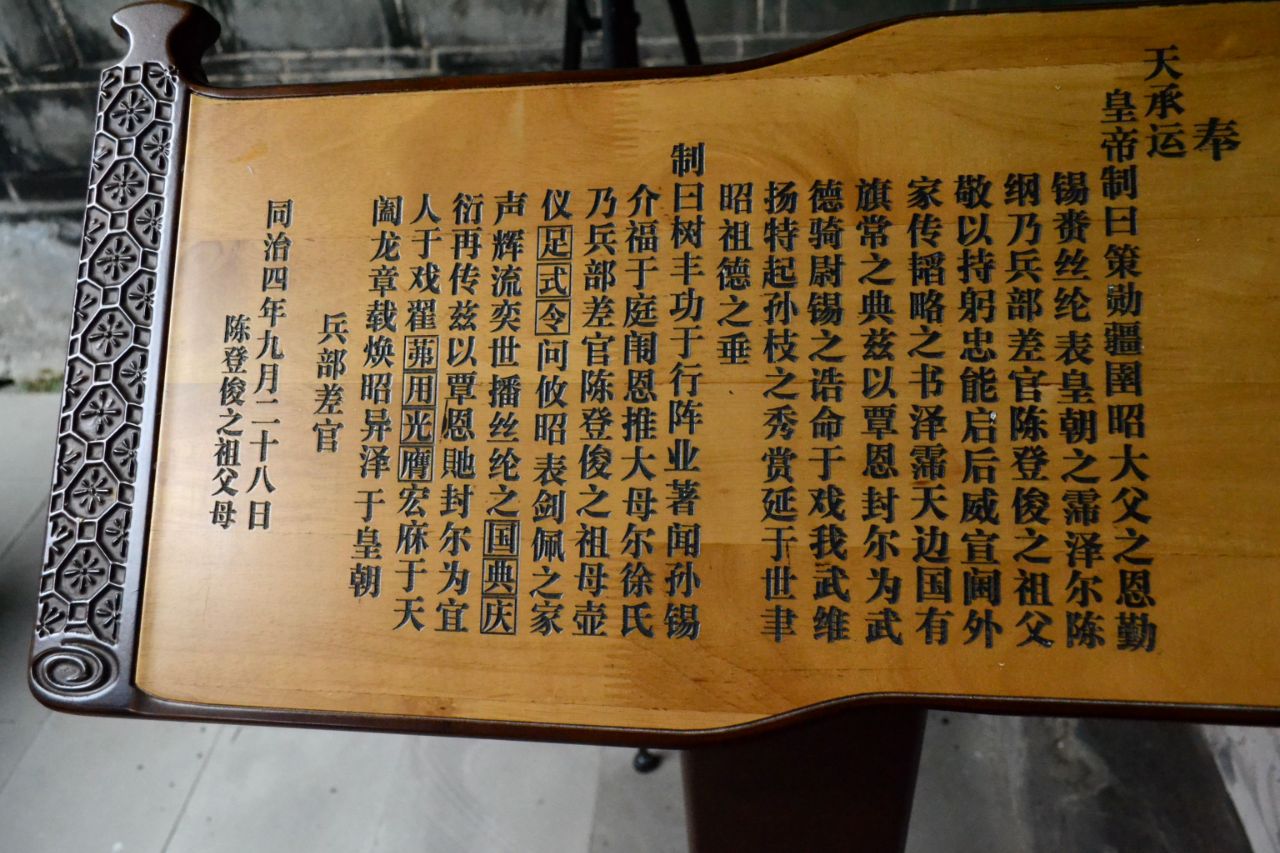 奉
天承运
皇帝制曰策勋疆圉昭大父之恩勤
锡赉丝纶表皇朝之霈泽尔陈
纲乃兵部差官陈登俊之祖父
敬以持躬忠能启后威宣阃外
家传韬略之书泽霈天边国有
旗常之典兹以覃恩封尔为武
德骑尉锡之诰命于戏我武维
扬特起孙枝之秀赏延于世聿
昭祖德之垂
制曰树丰功于行阵业著闻孙锡
介福于庭闱恩推大母尔徐氏
乃兵部差官陈登俊之祖母壶
仪足式令问攸昭表剑佩之家
声辉流奕世播丝纶之国典庆
衍再传兹以覃恩貤封尔为宜
人于戏翟茀用光膺宏庥于天
阖龙章载焕昭异泽于皇朝
兵部差官
同治四年九月二十八日
陈登俊之祖父母